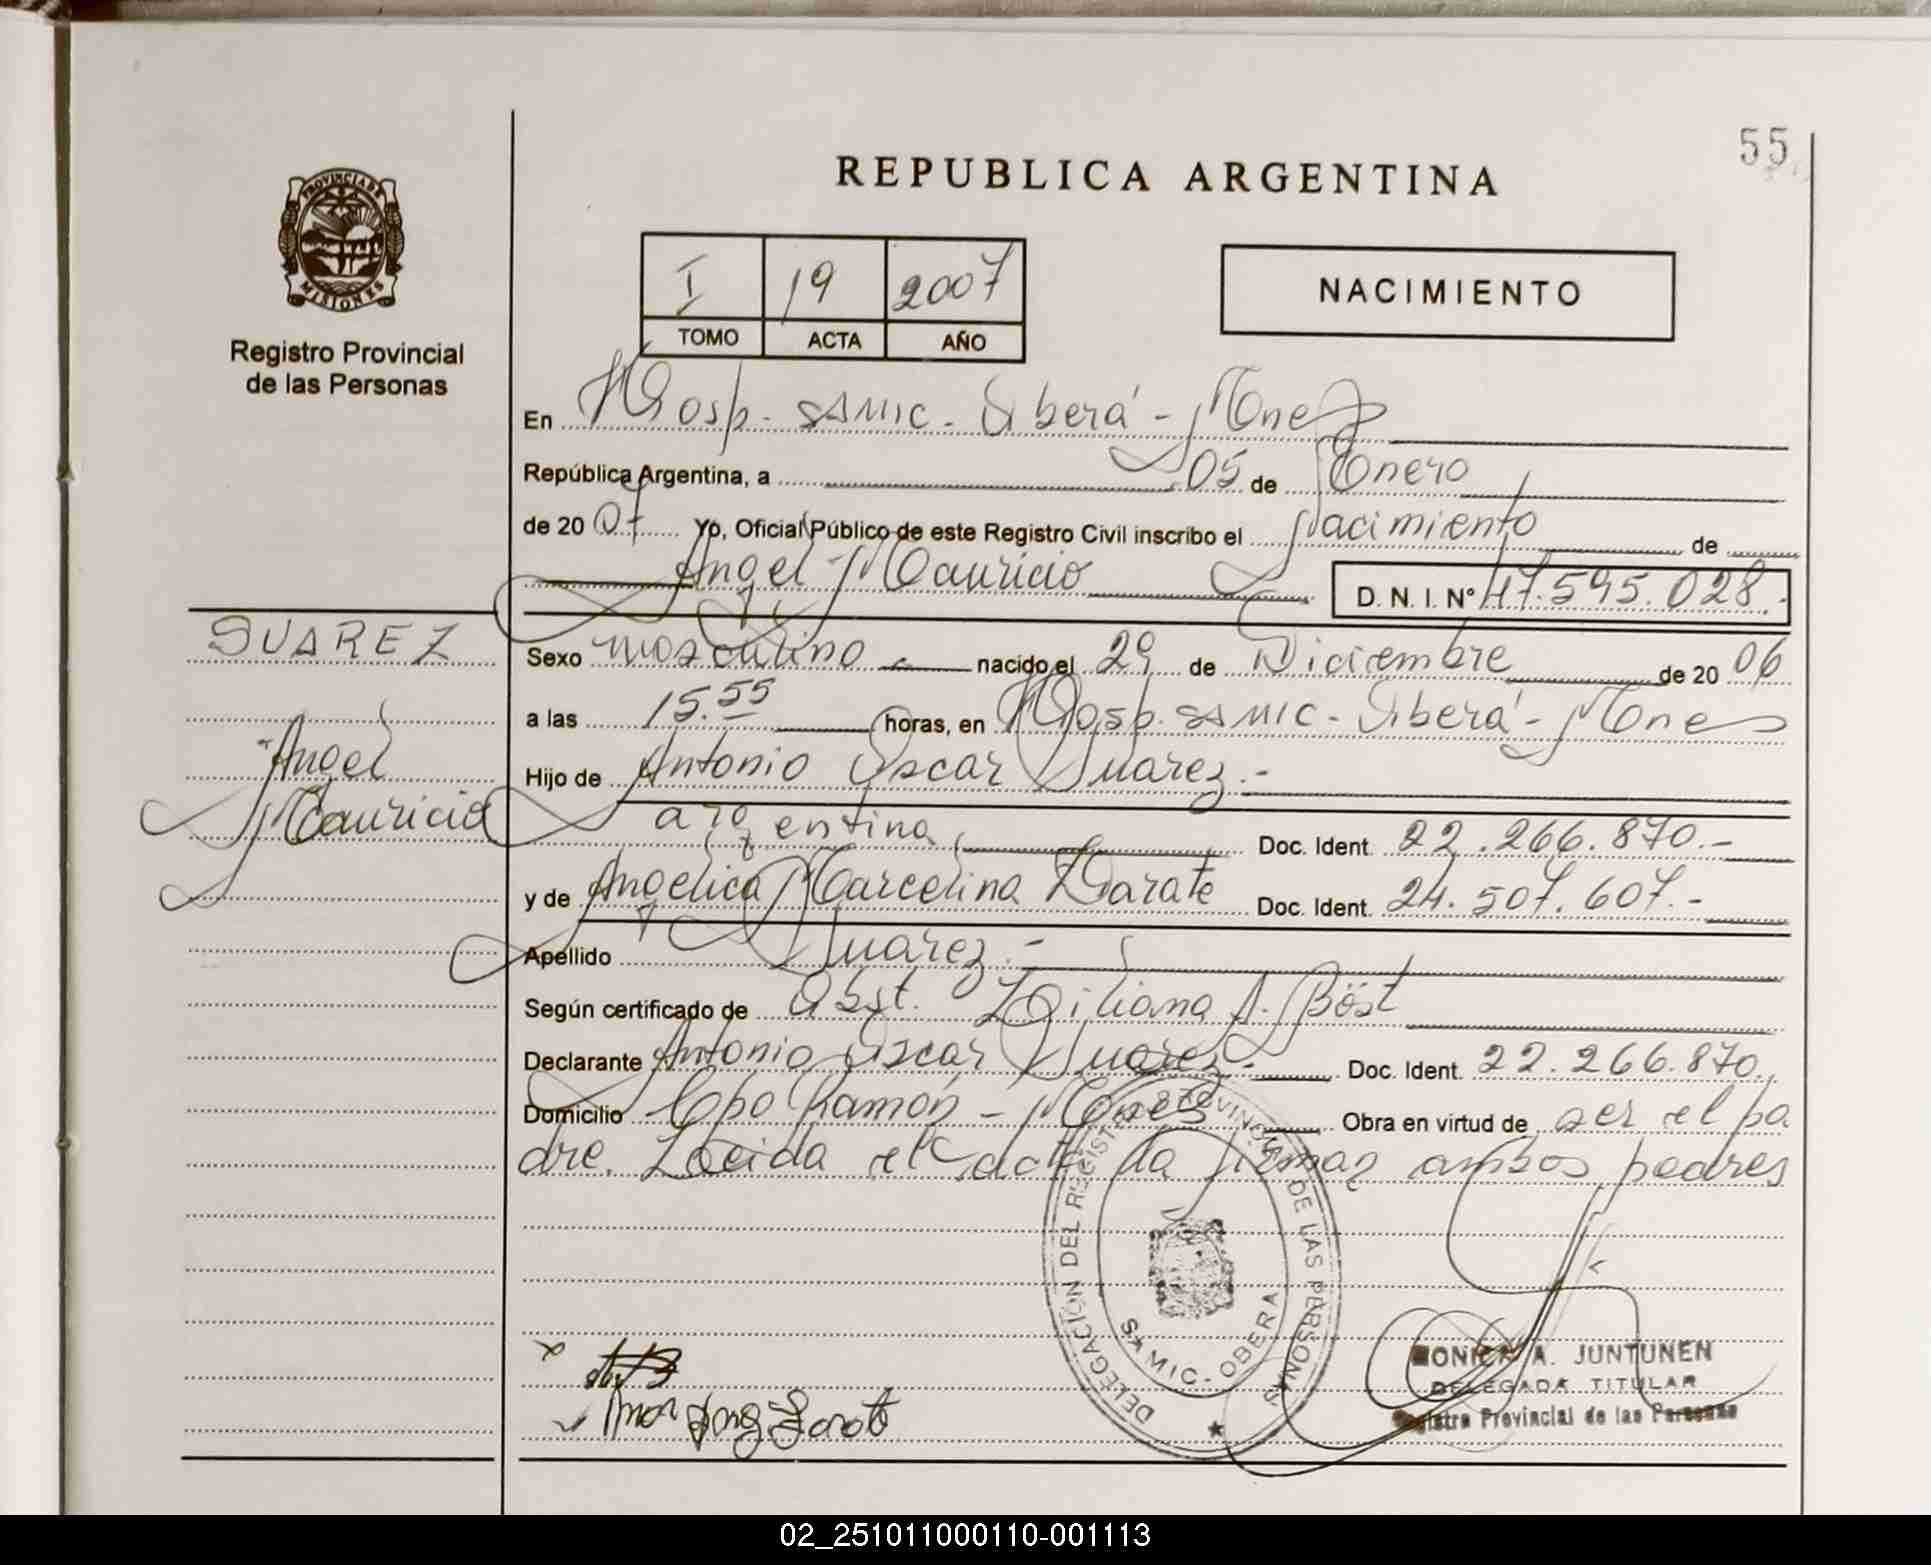 55
REPUBLICA ARGENTINA
PROVINCIA DE
MISIONES
Registro Provincial
de las Personas
I 19 2007
TOMO ACTA AÑO
NACIMIENTO
En Hosp. SAMIC - Oberá - Mnes
República Argentina, a 05 de Enero
de 20 07 Yo, Oficial Público de este Registro Civil inscribo el Nacimiento de
Angel Mauricio D. N. I. Nº 47.595.028.-
SUAREZ
Angel
Mauricio
Sexo masculino nacido el 29 de Diciembre de 20 06
a las 15.55 horas, en Hosp. SAMIC - Oberá - Mnes
Hijo de Antonio Oscar Suarez.-
argentina, Doc. Ident. 22.266.870.-
y de Angelica Marcelina Zarate Doc. Ident. 24.507.607.-
Apellido Suarez.-
Según certificado de Obst. Liliana A. Böst
Declarante Antonio Oscar Suarez.- Doc. Ident. 22.266.870.
Domicilio Cpo Ramón - Mnes Obra en virtud de ser el pa
dre. Leida el acta la firman ambos padres
DELEGACIÓN DEL REGISTRO PROVINCIAL DE LAS PERSONAS
SAMIC - OBERA
MONICA A. JUNTUNEN
DELEGADA TITULAR
Registro Provincial de las Personas
02_251011000110-001113